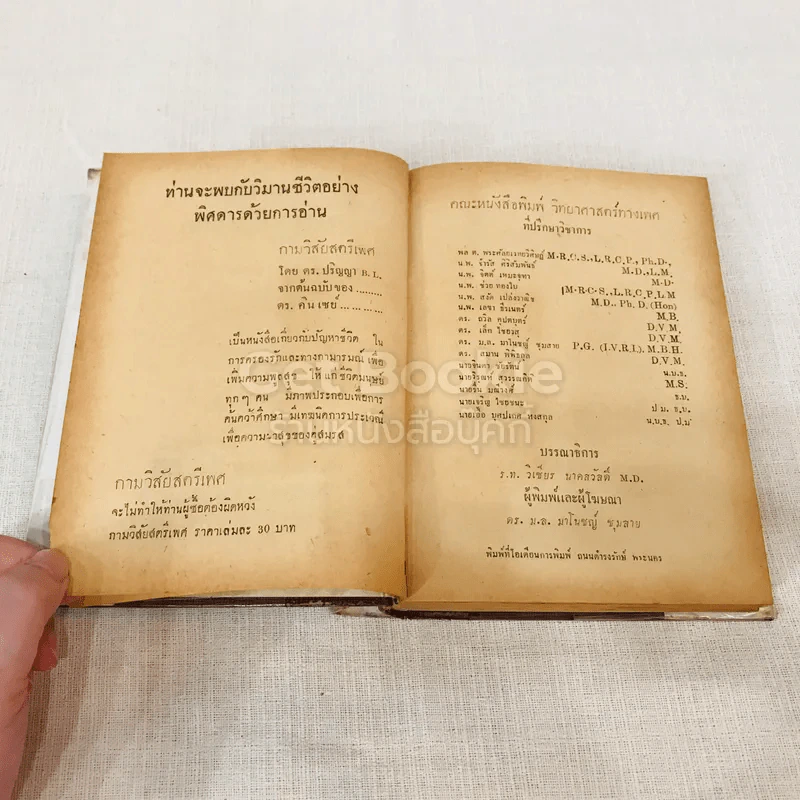 ท่านจะพบกับวิมานชีวิตอย่าง
พิศดารด้วยการอ่าน
กามวิสัยสตรีเพศ
โดย ดร. ปริญญา B. L.
จากต้นฉบับของ ........
ดร. คินเซย์ ............
เป็นหนังสือเกี่ยวกับปัญหาชีวิต ใน
การครองรักและทางกามารมณ์ เพื่อ
เพิ่มความผลสุข ให้ แก่ ชีวิตมนุษย์
ทุก ๆ คน มีภาพประกอบเพื่อการ
ค้นคว้าศึกษา มีเทฆนิคการประเวณี
เพื่อความ สุขของคู่สมรส
กามวิสัยสตรีเพศ
จะไม่ทำให้ท่านผู้ซื้อต้องผิดหวัง
กามวิสัยสตรีเพศ ราคาเล่มละ 30 บาท
คณะหนังสือพิมพ์ วิทยาศาสตร์ทางเพศ
ที่ปรึกษาวิชาการ
พล ต. พระศัลยเวทยวิศิษฏ์ M·R·C·S·,L·R·C·P·, Ph·D·,
น.พ. จำรัส ศิริสัมพันธ์ M.D.,L.M.
น.พ. จิตต์ เหมะจุฑา M·D·
น.พ. ช่วย ทองใบ M·R·C·S·,L·R·C·P L M
น.พ. สงัด เปล่งวานิช M.D., Ph. D. (Hon)
น.พ. เลขา ธีรเนตร์ M.B.
ดร. ถวิล คุปตบุตร์ D.V.M.
ดร. เล็ก ไชยงสุ D.V.M.
ดร. ม.ล. มาโนชญ์ ชุมสาย P.G. (I.V.R.I.), M.B.H.
ดร. สมาน พิพิธกุล D.V.M.
นาวจินดา ชัยรัตน์ น.บ.ธ.
นายจรูญห์ สุวรรณทัต M.S.
นายชื่น มณีวงศ์ ธ.บ.
นายเจริญ ไชยชนะ ป ม. ธ.บ.
นายเชื้อ บุศปเกศ หงสกุล น.บ.ธ. ป.ม
บรรณาธิการ
ร.ท. วิเชียร นาคสวัสดิ์ M.D.
ผู้พิมพ์และผู้โฆษณา
ดร. ม.ล. มาโนชญ์ ชุมสาย
พิมพ์ที่ไอเดียนการพิมพ์ ถนนดำรงรักษ์ พระนคร
GetBookie
ร้านหนังสือบุ๊คกี้